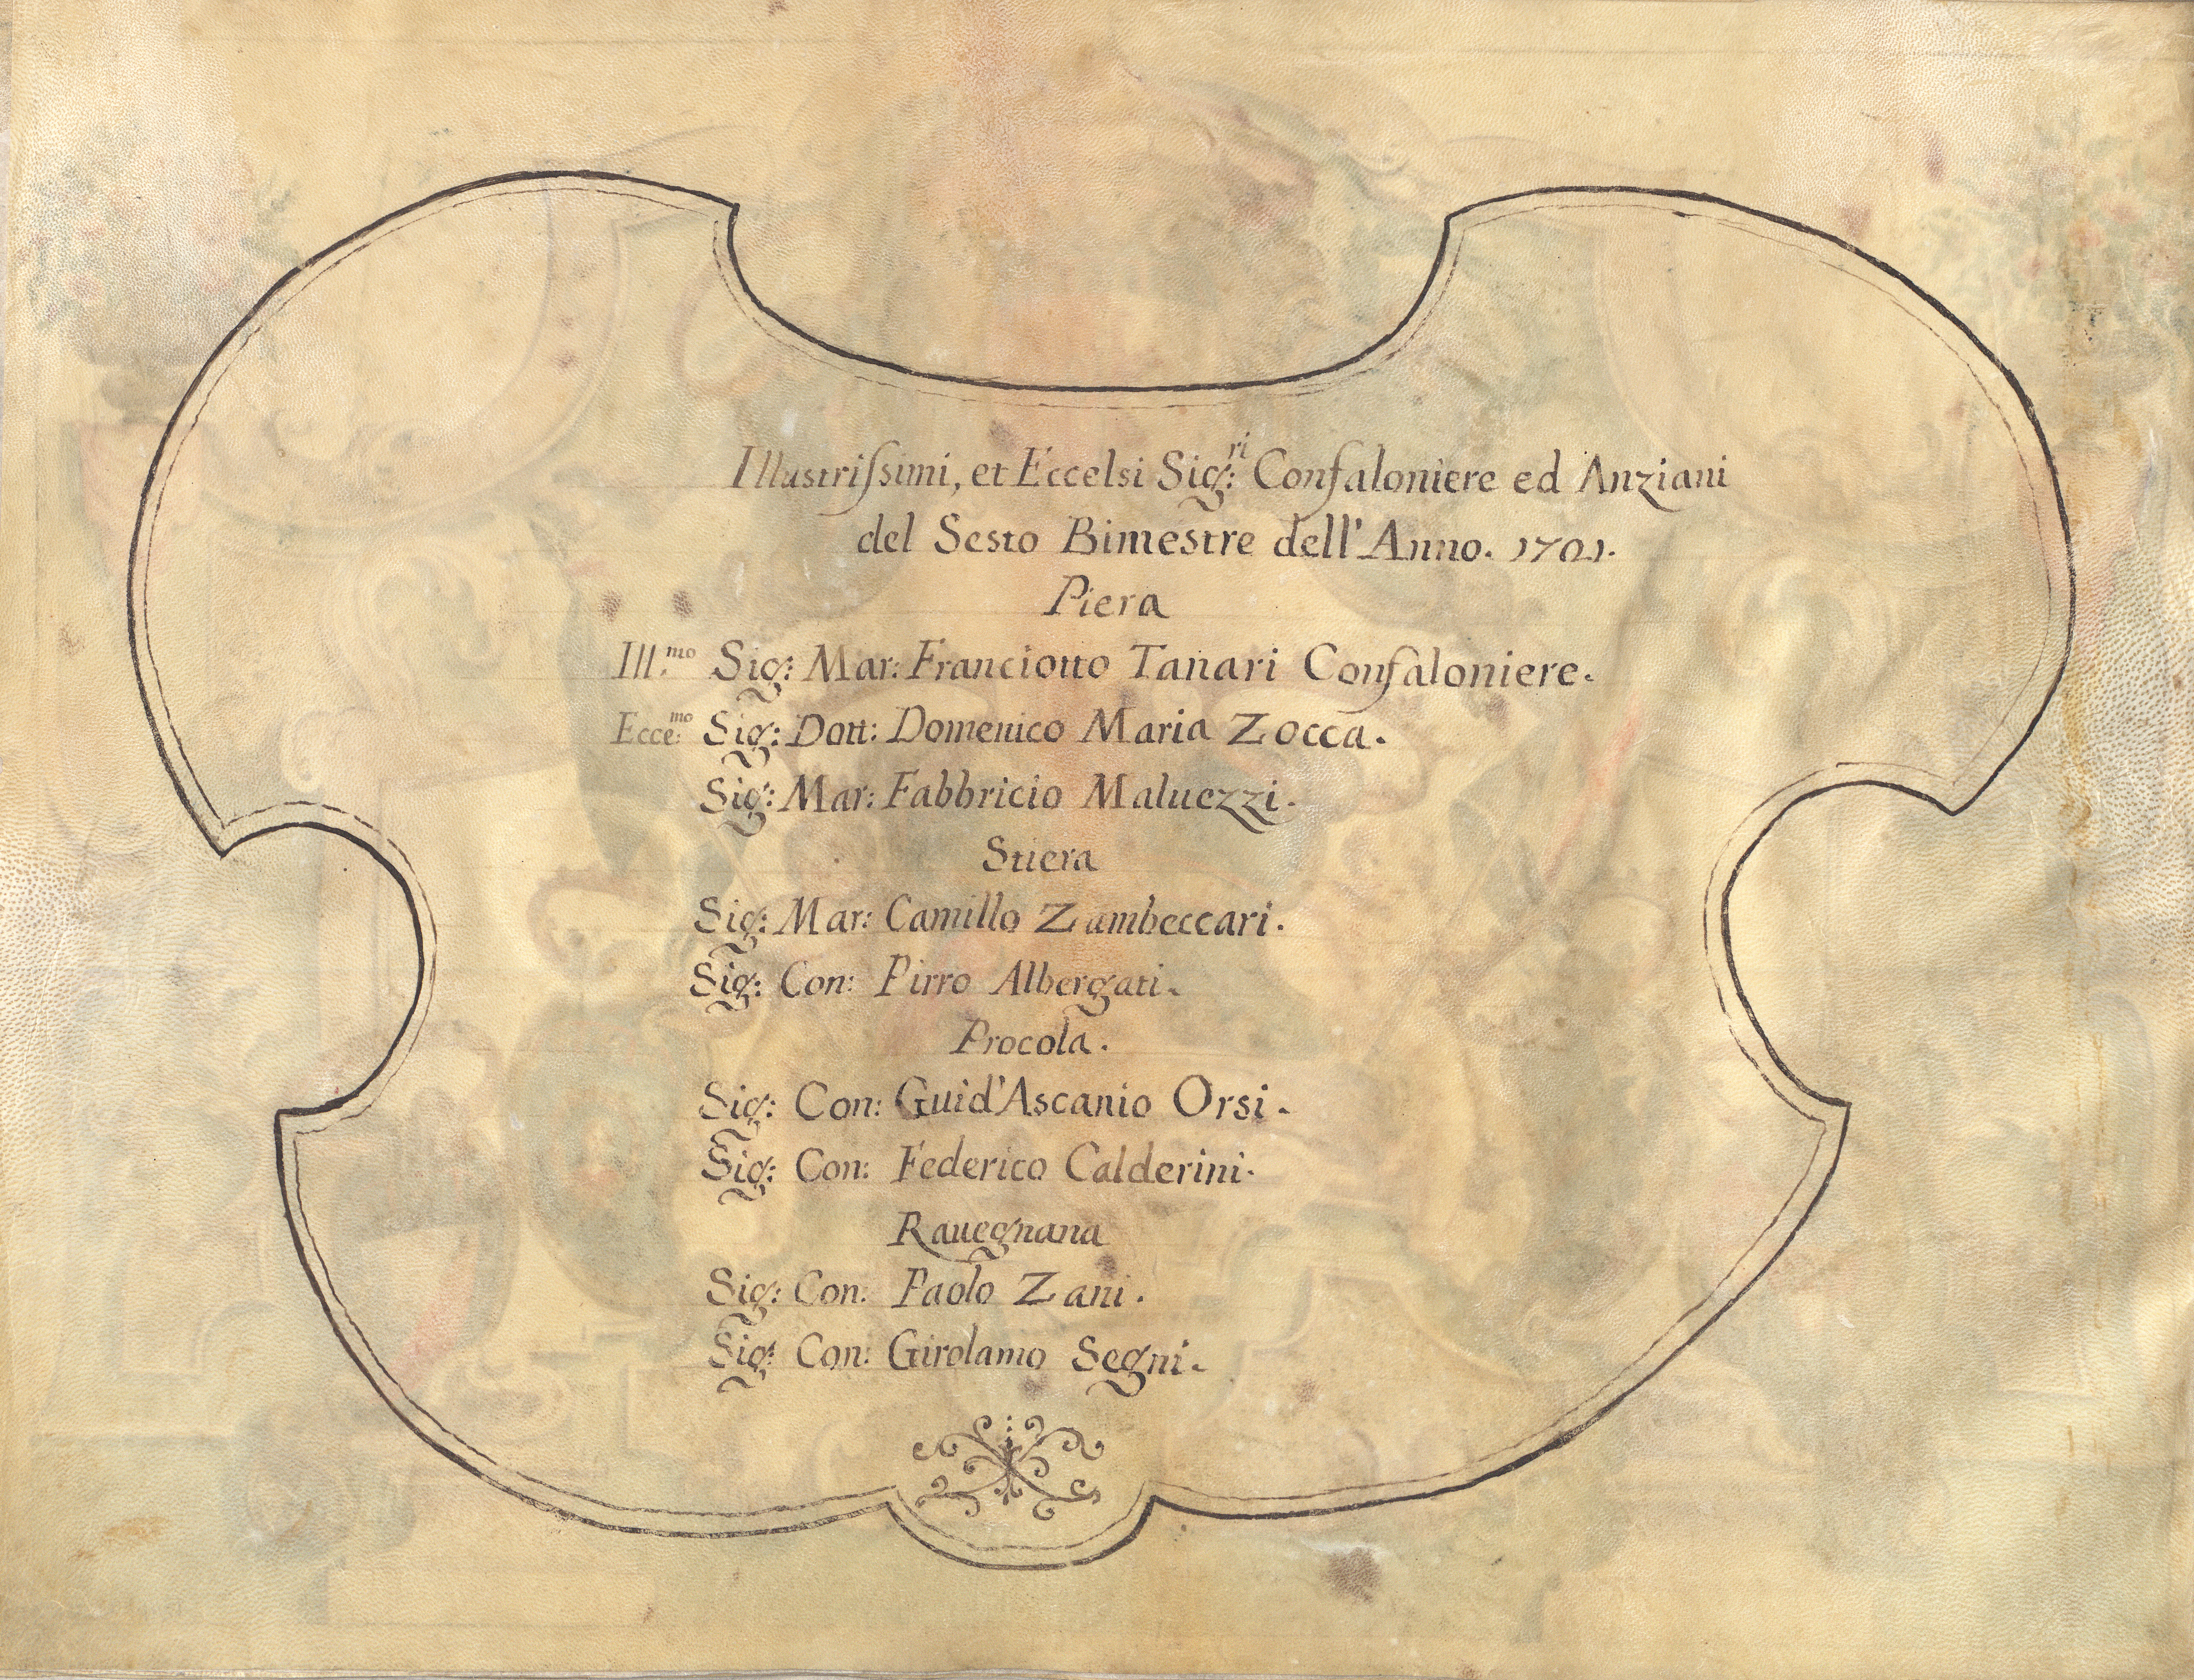 Illustriſsimi, et Eccelsi Sig:ri Confaloniere ed Anziani
del Sesto Bimestre dell'Anno. 1701.
Piera
Ill.mo Sig: Mar: Franciotto Tanari Confaloniere.
Ecce:mo Sig: Dott: Domenico Maria Zocca.
Sig: Mar: Fabbricio Maluezzi.
Stiera
Sig: Mar: Camillo Zambeccari.
Sig: Con: Pirro Albergati.
Procola.
Sig: Con: Guid'Ascanio Orsi.
Sig: Con: Federico Calderini.
Rauegnana
Sig: Con: Paolo Zani.
Sig: Con: Girolamo Segni.